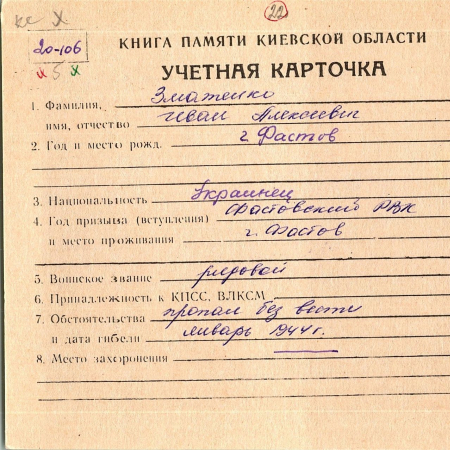 22
20-106
х 5 х
КНИГА ПАМЯТИ КИЕВСКОЙ ОБЛАСТИ
УЧЕТНАЯ КАРТОЧКА
1. Фамилия, Зматенко
имя, отчество Иван Алексеевич
2. Год и место рожд. г. Фастов
3. Национальность Украинец
4. Год призыва (вступления) Фастовский РВК
и место проживания г. Фастов
5. Воинское звание рядовой
6. Принадлежность к КПСС, ВЛКСМ
7. Обстоятельства пропал без вести
и дата гибели январь 1944 г.
8. Место захоронения